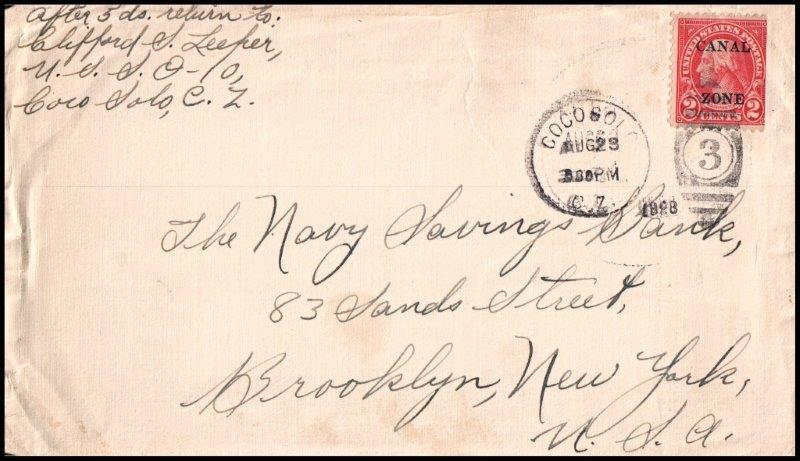 After 5 ds. return to.
Clifford S. Leeper,
U. S. S. O-10,
Coco Solo, C. Z.
UNITED STATES POSTAGE
CANAL
ZONE
2 CENTS 2
COCO SOLO
AUG 23
PM
C. Z.
1928
3
The Navy Savings Bank,
83 Sands Street,
Brooklyn, New York,
U. S. A.